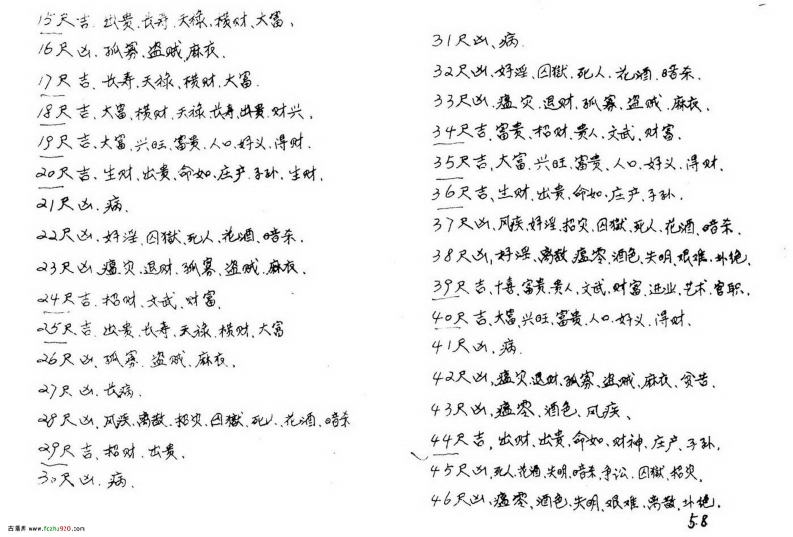 15尺吉.出贵.长寿.天禄.横财.大富.
16尺凶.孤寡.盗贼.麻衣.
17尺吉.长寿.天禄.横财.大富.
18尺吉.大富.横财.天禄.长寿.出贵.财兴.
19尺吉.大富.兴旺.富贵.人口.好义.得财.
20尺吉.生财.出贵.命如.庄产.子孙.生财.
21尺凶.病.
22尺凶.奸淫.囚獄.死人.花酒.暗杀.
23尺凶.瘟灾.退财.孤寡.盗贼.麻衣.
24尺吉.招财.文武.财富.
25尺吉.出贵.长寿.天禄.横财.大富
26尺凶.孤寡.盗贼.麻衣.
27尺凶.长病.
28尺凶.风疾.离散.招灾.囚獄.死人.花酒.暗杀
29尺吉.招财.出贵.
30尺凶.病.
31尺凶、病.
32尺凶.奸淫.囚獄.死人.花酒.暗杀.
33尺凶.瘟灾.退财.孤寡.盗贼.麻衣.
34尺吉.富贵.招财.贵人.文武.财富.
35尺吉.大富.兴旺.富贵.人口.好义.得财.
36尺吉.生财.出贵.命如.庄产.子孙.
37尺凶.风疾.奸淫.招灾.囚獄.死人.花酒.暗杀.
38尺凶.奸淫.离散.瘟零.酒色.失明.艰难.卦绝.
39尺吉.十喜.富贵.贵人.文武.财富.进业.艺术.官职.
40尺吉.大富.兴旺.富贵.人口.好义.得财.
41尺凶.病.
42尺凶.瘟灾.退财.孤寡.盗贼.麻衣.贫苦.
43尺凶.瘟零.酒色.风疾、
44尺吉.出财.出贵.命如.财神.庄产.子孙.
45尺凶.死人.花酒.失明.暗杀.争讼.囚獄.招灾.
46尺凶.瘟零.酒色.失明.艰难.离散.卦绝.
58
www.fczhu920.com